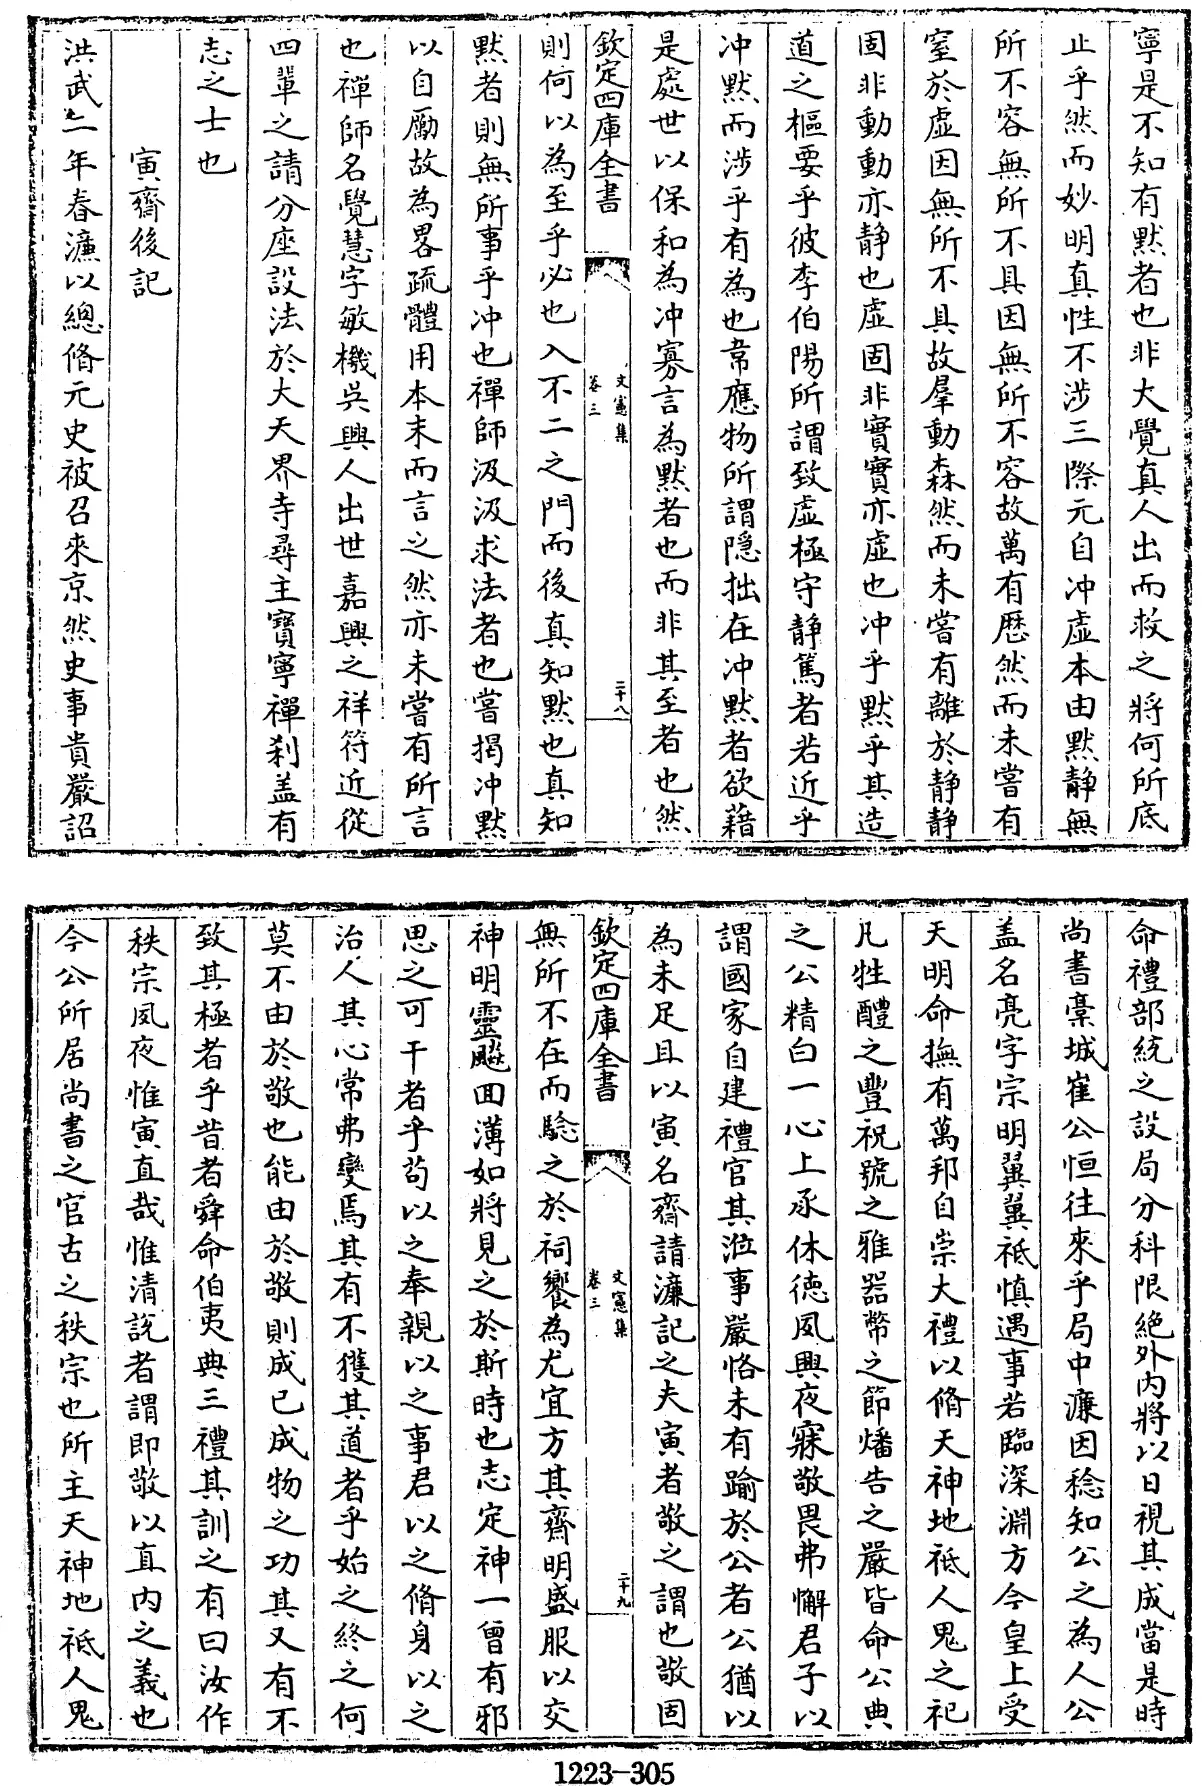 寧是不知有黙者也非大覺真人出而救之將何所底
止乎然而妙明真性不涉三際元自冲虚本由黙靜無
所不容無所不具因無所不容故萬有厯然而未嘗有
窒於虚因無所不具故羣動森然而未嘗有離於静静
固非動動亦静也虚固非實實亦虚也冲乎黙乎其造
道之樞要乎彼李伯陽所謂致虚極守静篤者若近乎
冲黙而涉乎有為也常應物所謂隠拙在冲黙者欲藉
是處世以保和為冲寡言為黙者也而非其至者也然
欽定四庫全書
文憲集
卷三
二十八
則何以為至乎必也入不二之門而後真知黙也真知
黙者則無所事乎冲也禪師汲汲求法者也嘗揭冲黙
以自勵故為畧疏體用本末而言之然亦未嘗有所言
也禪師名覺慧字敏機吳興人出世嘉興之祥符近從
四軰之請分座設法於大天界寺尋主寳寧禪刹盖有
志之士也
寅齋後記
洪武二年春濂以總脩元史被召來京然史事貴嚴詔
命禮部統之設局分科限絶外内將以日視其成當是時
尚書藁城崔公恒往來乎局中濂因稔知公之為人公
盖名亮字宗明翼翼祗慎遇事若臨深淵方今皇上受
天明命撫有萬邦自崇大禮以脩天神地祗人鬼之祀
凡牲醴之豐祝號之雅器幣之節燔告之嚴皆命公典
之公精白一心上承休徳夙興夜寐敬畏弗懈君子以
謂國家自建禮官其涖事嚴恪未有踰於公者公猶以
為未足且以寅名齋請濂記之夫寅者敬之謂也敬固
欽定四庫全書
文憲集
卷三
二十九
無所不在而驗之於祠饗為尤宜方其齋明盛服以交
神明靈飈回薄如將見之於斯時也志定神一曾有邪
思之可干者乎茍以之奉親以之事君以之脩身以之
治人其心常弗變焉其有不獲其道者乎始之終之何
莫不由於敬也能由於敬則成已成物之功其又有不
致其極者乎昔者舜命伯夷典三禮其訓之有曰汝作
秩宗夙夜惟寅直哉惟清説者謂即敬以直内之義也
今公所居尚書之官古之秩宗也所主天神地祗人鬼
1223-305